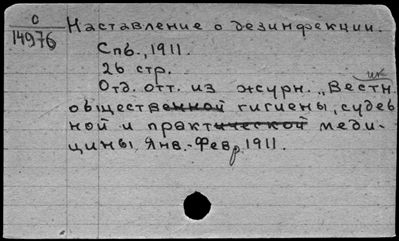 0
14976
Наставление о дезинфекции.
Спб., 1911.
26 стр.
Отд. отт. из журн. „Вестник
общественной гигиены, судеб
ной и практической меди-
цины, Янв.-Февр. 1911.